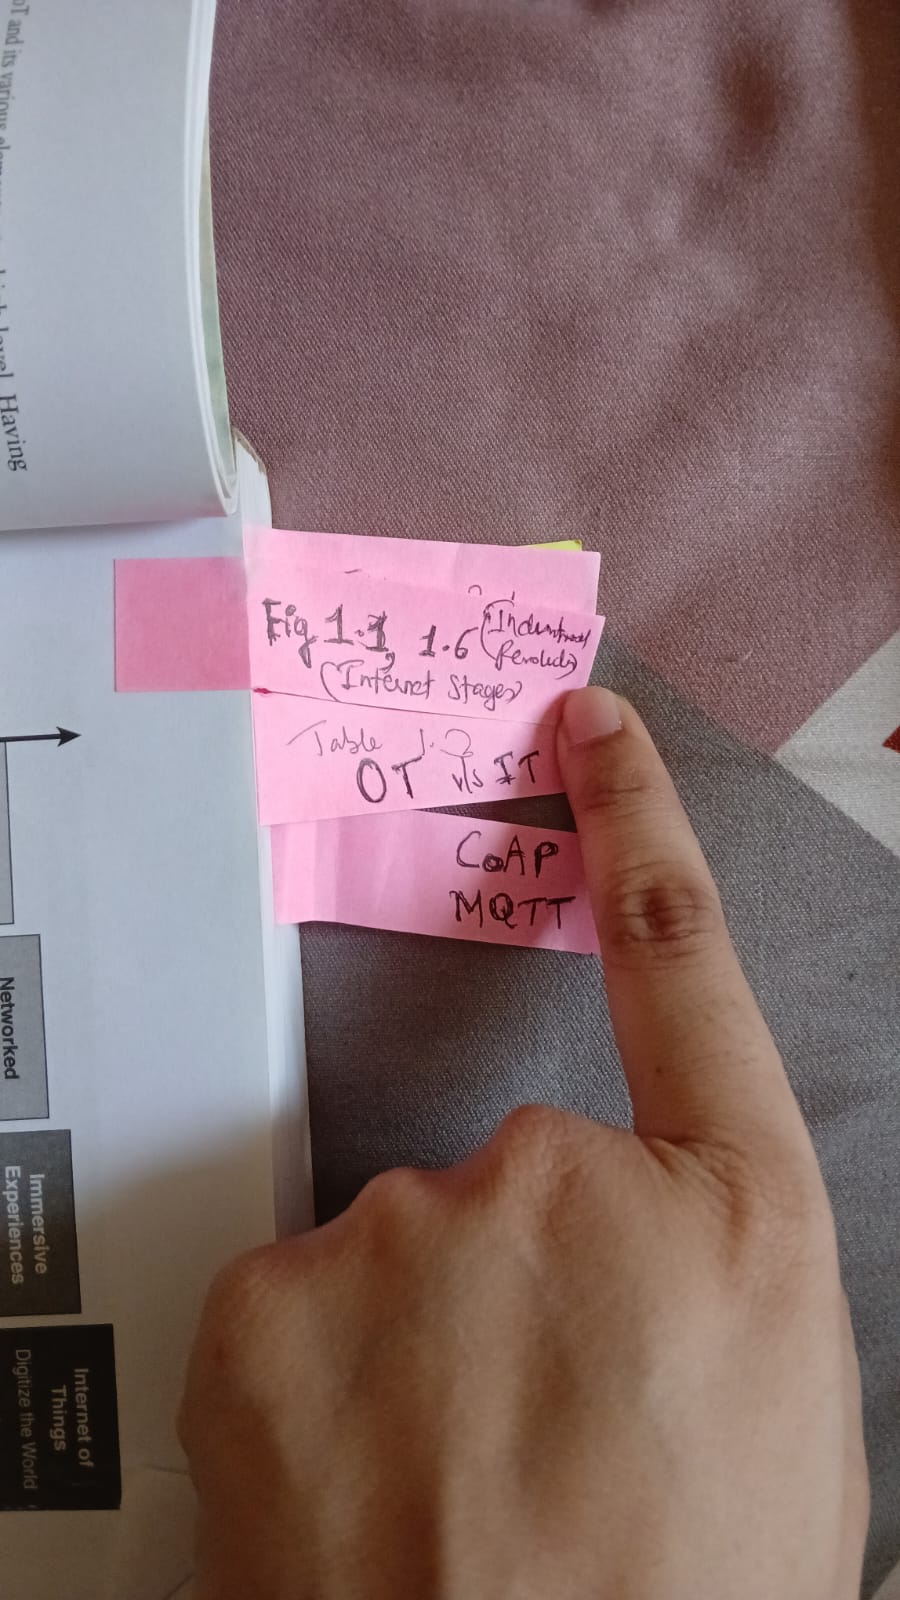 oT and its various
level. Having
Fig 1.1, 1.6 (Industrial
(Internet Stages)
Table 1.2
OT v/s IT
CoAP
MQTT
Networked
Immersive
Experiences
Internet of
Things
Digitize the World